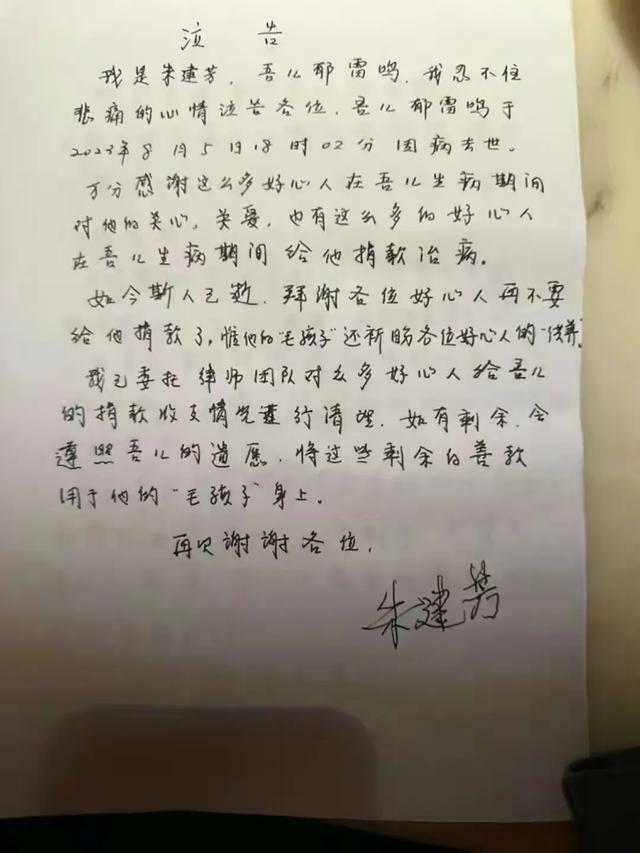 泣告
我是朱建芳，吾儿郁雷鸣，我忍不住
悲痛的心情泣告各位，吾儿郁雷鸣于
2023年8月5日18时02分因病去世。
万分感谢这么多好心人在吾儿生病期间
对他的关心，关爱，也有这么多的好心人
在吾儿生病期间给他捐款治病。
如今斯人已逝，拜谢各位好心人再不要
给他捐款了，惟他的“毛孩子”还祈盼各位好心人的“供养”。
我已委托律师团队对众多好心人给吾儿
的捐款收支情况进行清理，如有剩余，会
遵照吾儿的遗愿，将这些剩余的善款
用于他的“毛孩子”身上。
再次谢谢各位，
朱建芳